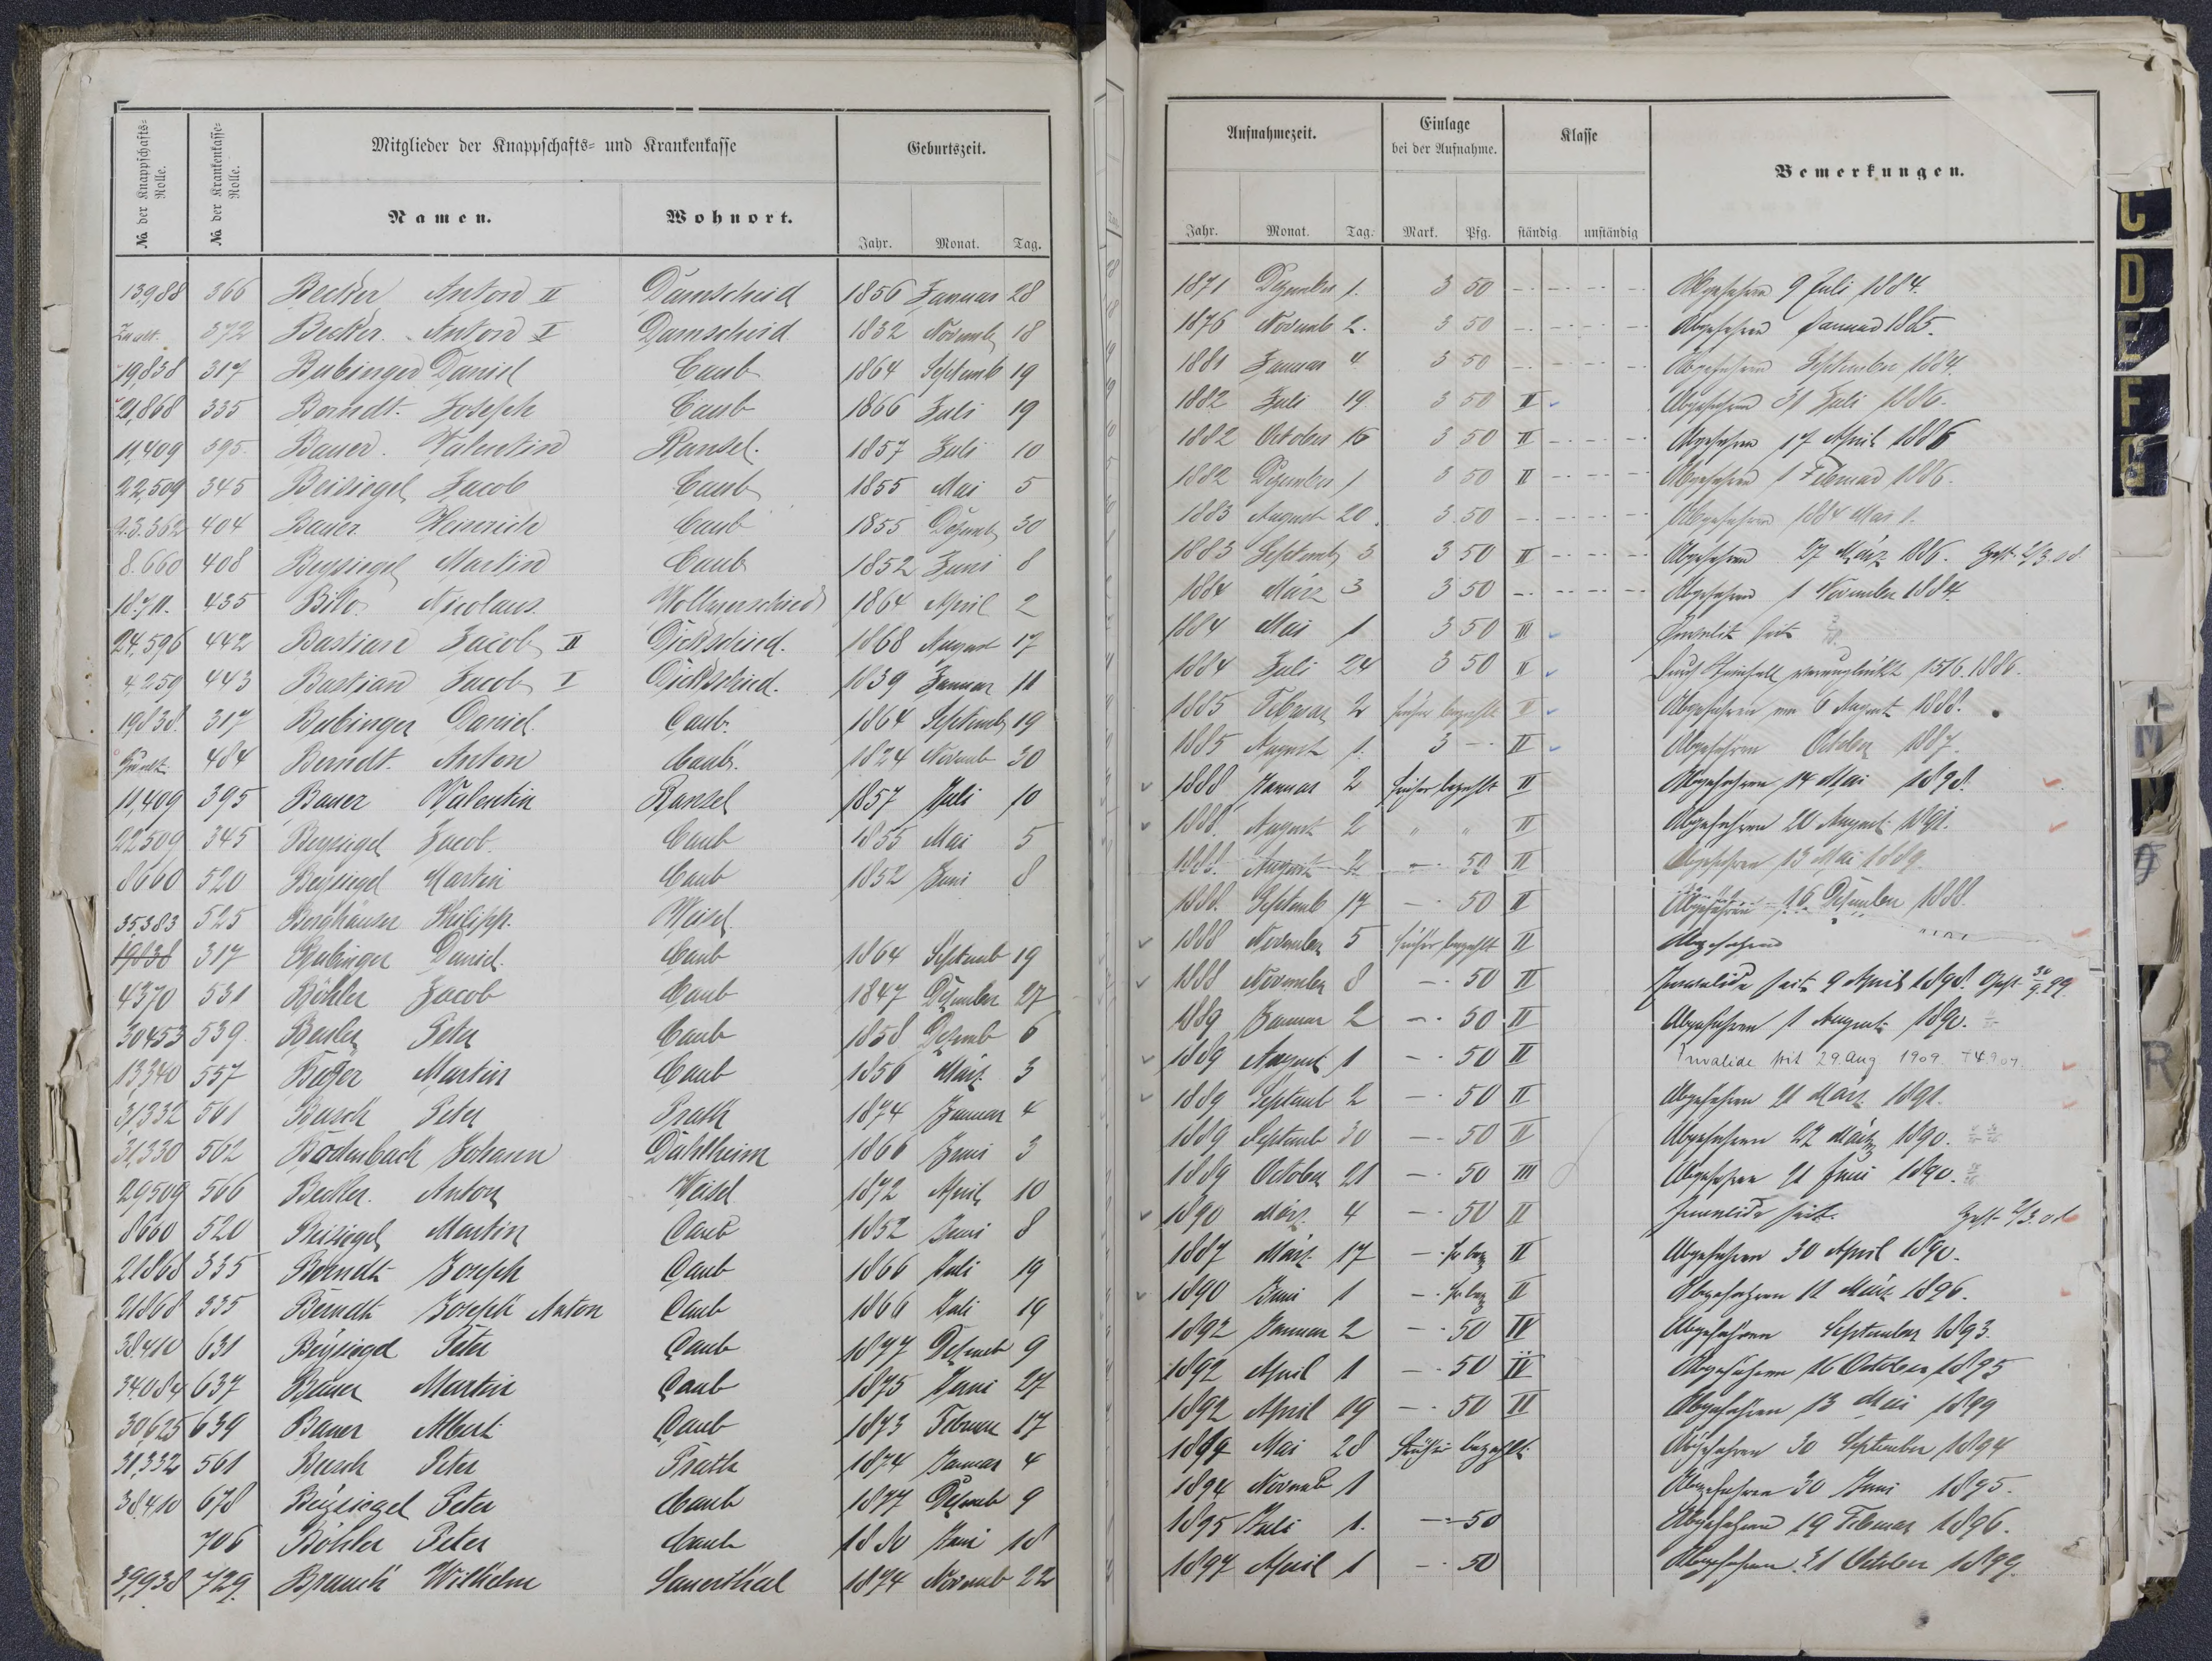 No. der Knappschafts-Rolle. No. der Krankenkasse-Rolle. Mitglieder der Knappschafts- und Krankenkasse Geburtszeit. Aufnahmezeit. Einlage bei der Aufnahme. Klasse Bemerkungen.
Namen. Wohnort. Jahr. Monat. Tag. Jahr. Monat. Tag. Mark. Pfg. ständig unständig
13,988 366 Becker Anton II Damscheid 1856 Januar 28 1871 Dezember 1. 3 50 Abgefahren 9 Juli 1884.
372 Becker Anton I Damscheid 1832 Novemb 18 1876 Novemb 2. 3 50 Abgefahren Januar 1885.
19,838 317 Bubinger Daniel Caub 1864 Septemb 19 1881 Januar 4 3 50 Abgefahren September 1884.
21,868 335 Berndt Joseph Caub 1866 Juli 19 1882 Juli 19 3 50 II Abgefahren 31 Juli 1886.
11,409 395 Bauer Valentin Ransel. 1857 Juli 10 1882 October 16 3 50 II Abgefahren 17 April 1886
22,509 345 Beisiegel Jacob Caub 1855 Mai 5 1882 Dezember 1 3 50 II Abgefahren 1 Februar 1886.
23.362 404 Bauer Heinrich Caub 1855 Dezemb 30 1883 August 20. 3 50 Abgefahren 1884 Mai 1.
8.660 408 Beysiegel Martin Caub 1852 Juni 8 1883 Septemb 3 3 50 II Abgefahren 27 März 1886.
18.711. 435 Nicolaus Wollmerschied 1864 April 2 1884 März 3 3 50 Abgefahren 1 November 1884.
24,596 442 Bastian Jacob II Dickschied. 1868 August 17 1884 Mai 1 3 50 III Invalide seit
4,259 443 Bastian Jacob I Dickschied. 1839 Januar 11 1884 Juli 24 3 50 II Durch Steinfall verunglückt 15/6.1886.
19,838. 317 Bubinger Daniel. Caub. 1864 Septemb 19 1885 Februar 2 früher bezahlt II Abgefahren am 6 August 1888.
484 Berndt. Anton Caub. 1824 Novemb 30 1885 August 1. 3 - II Abgefahren October 1887.
11,409 395 Bauer Valentin Ransel 1857 Juli 10 1888 Januar 2 früher bezahlt II Abgefahren 14 Mai 1898.
22509 345 Beysiegel Jacob. Caub 1855 Mai 5 1888. August 2 " " II Abgefahren 20 August 1891.
8660 520 Beysiegel Martin Caub 1852 Juni 8 1888. August 2 - 50 II Abgefahren 13 Mai 1889.
35,383 525 Berghäuser Philipp. Weisel. 1888. Septemb 17 - 50 II Abgefahren 16 Dezember 1888.
19,838 317 Bubinger Daniel. Caub 1864 Septemb 19 1888 November 5 früher bezahlt II Abgefahren
4370 531 Böhler Jacob Caub 1847 Dezember 27 1888 November 8 - 50 II Invalide seit 9 April 1898. Gest. 30/9.99.
30453 539. Peter Caub 1858 Dezemb 6 1889 Januar 2 - 50 II Abgefahren 1 August 1890.
13,340 557 Martin Caub 1856 März 3 1889 August 1 - 50 II Invalide seit 29. Aug 1909.
31,332 561 Busch Peter Prath 1874 Januar 4 1889 Septemb 2 - 50 II Abgefahren 21 März 1891.
31,330 562 Bodenbach Johann Dahlheim 1866 Juni 3 1889 Septemb 30 - 50 II Abgefahren 22 März 1890.
29509 566 Becker. Anton Weisel 1872 April 10 1889 October 21 - 50 III Abgefahren 21 Juni 1890.
8660 520 Beisiegel Martin Caub 1852 Juni 8 1890 März. 4 - 50 II Invalide seit
21868 335 Berndt Joseph Caub 1866 Juli 19 1887 März 17 - fr bez II Abgefahren 30 April 1890.
21868 335 Berndt Joseph Anton Caub 1866 Juli 19 1890 Juni 1 - fr bez II Abgefahren 11 März 1896.
38410 631 Beysiegel Peter Caub 1877 Dezemb 9 1892 Januar 2 - 50 IV Abgefahren September 1893.
34,084 637 Bauer Martin Caub 1875 Juni 27 1892 April 1 - 50 Abgefahren 16 October 1895
30,625 639 Bauer Albert Caub 1873 Februar 17 1892 April 19 - 50 II Abgefahren 13 Mai 1899
31,332 561 Busch Peter Prath 1874 Januar 4 Mai 28 früher bezahlt. Abgefahren 30 September 1894
38,410 678 Beysiegel Peter Caub 1877 Dezemb 9 1894 Novemb 1 Abgefahren 30 Juni 1895.
706 Böhler Peter Caub 1880 Juni 18 1895 Juli 1. - 50 Abgefahren 19 Februar 1896.
39,938 729. Brauch Wilhelm Sauerthal 1874 Novemb 22 1897 April 1 - 50 Abgefahren 31 October 1899.
C
D
E
F
G
R